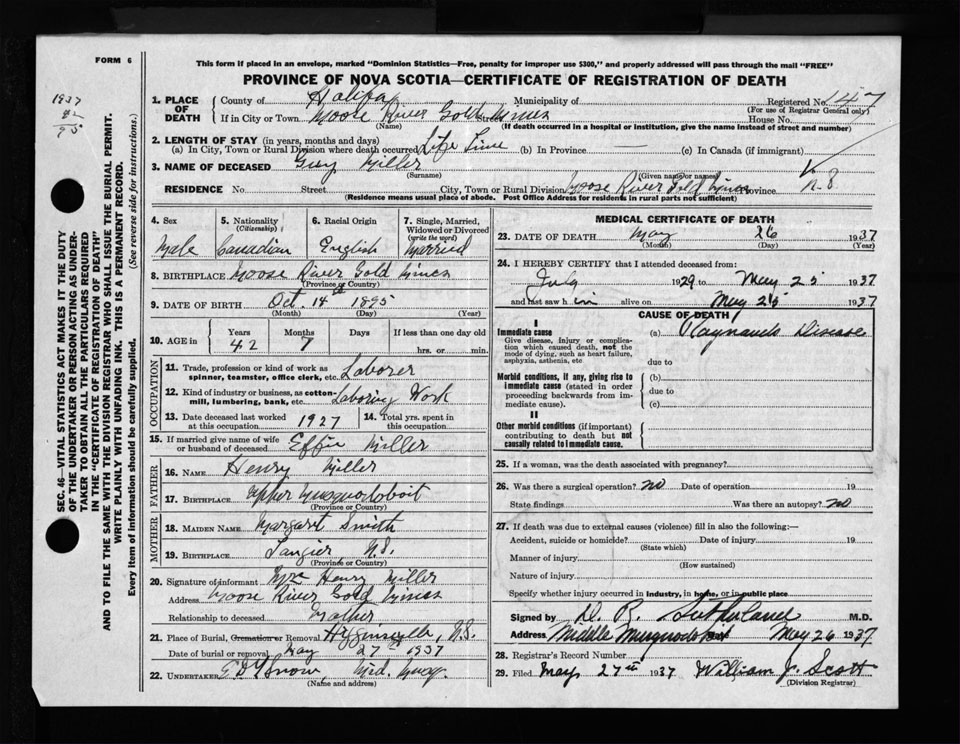 FORM 6
This form if placed in an envelope, marked "Dominion Statistics—Free, penalty for improper use $300," and properly addressed will pass through the mail "FREE"
PROVINCE OF NOVA SCOTIA—CERTIFICATE OF REGISTRATION OF DEATH
1937
82
95
SEC. 46—VITAL STATISTICS ACT MAKES IT THE DUTY
OF THE UNDERTAKER OR PERSON ACTING AS UNDER-
TAKER TO OBTAIN ALL THE PARTICULARS REQUIRED
IN THE "CERTIFICATE OF REGISTRATION OF DEATH"
AND TO FILE THE SAME WITH THE DIVISION REGISTRAR WHO SHALL ISSUE THE BURIAL PERMIT.
WRITE PLAINLY WITH UNFADING INK. THIS IS A PERMANENT RECORD.
Every item of information should be carefully supplied. (See reverse side for instructions.)
1. PLACE OF DEATH County of Halifax Municipality of Registered No. 147
(For use of Registrar General only)
If in City or Town Moose River Gold Mines Street House No.
(Name) (If death occurred in a hospital or institution, give the name instead of street and number)
2. LENGTH OF STAY (in years, months and days)
(a) In City, Town or Rural Division where death occurred Life Time (b) In Province (c) In Canada (if immigrant)
3. NAME OF DECEASED Guy Miller
(Surname) (Given name or names)
RESIDENCE No. Street City, Town or Rural Division Moose River Gold Mines Province N.S.
(Residence means usual place of abode. Post Office Address for residents in rural parts not sufficient)
4. Sex 5. Nationality (Citizenship) 6. Racial Origin 7. Single, Married, Widowed or Divorced (write the word)
Male Canadian English Married
8. BIRTHPLACE Moose River Gold Mines
(Province or Country)
9. DATE OF BIRTH Oct. 14th 1895
(Month) (Day) (Year)
10. AGE in Years Months Days If less than one day old
42 7 hrs. or min.
OCCUPATION
11. Trade, profession or kind of work as spinner, teamster, office clerk, etc. Laborer
12. Kind of industry or business, as cotton-mill, lumbering, bank, etc. Laboring Work
13. Date deceased last worked at this occupation 1927 14. Total yrs. spent in this occupation
15. If married give name of wife or husband of deceased Effie Miller
FATHER
16. NAME Henry Miller
17. BIRTHPLACE Upper Musquodoboit
(Province or Country)
MOTHER
18. MAIDEN NAME Margaret Smith
19. BIRTHPLACE Tangier, N.S.
(Province or Country)
20. Signature of informant Mrs Henry Miller
Address Moose River Gold Mines
Relationship to deceased Mother
21. Place of Burial, Cremation or Removal Higginsville, N.S.
Date of burial or removal May 27th 1937
22. UNDERTAKER Snow Mid. Musq.
(Name and address)
MEDICAL CERTIFICATE OF DEATH
23. DATE OF DEATH May 26 1937
(Month) (Day) (Year)
24. I HEREBY CERTIFY that I attended deceased from:
July 1929 to May 25 1937
and last saw h im alive on May 25 1937
CAUSE OF DEATH
I
Immediate cause (a) Raynauds Disease
Give disease, injury or complication which caused death, not the mode of dying, such as heart failure, asphyxia, asthenia, etc
due to
Morbid conditions, if any, giving rise to immediate cause (stated in order proceeding backwards from immediate cause).
(b)
due to
(c)
II
Other morbid conditions (if important) contributing to death but not causally related to immediate cause.
25. If a woman, was the death associated with pregnancy?
26. Was there a surgical operation? no Date of operation 19
State findings Was there an autopsy? no
27. If death was due to external causes (violence) fill in also the following:—
Accident, suicide or homicide? Date of injury 19
(State which)
Manner of injury
(How sustained)
Nature of injury
Specify whether injury occurred in industry, in home, or in public place
Signed by D. R. Sutherland M.D.
Address Middle Musquodoboit May 26 1937
28. Registrar's Record Number
29. Filed May 27th 1937 William J. Scott
(Division Registrar)